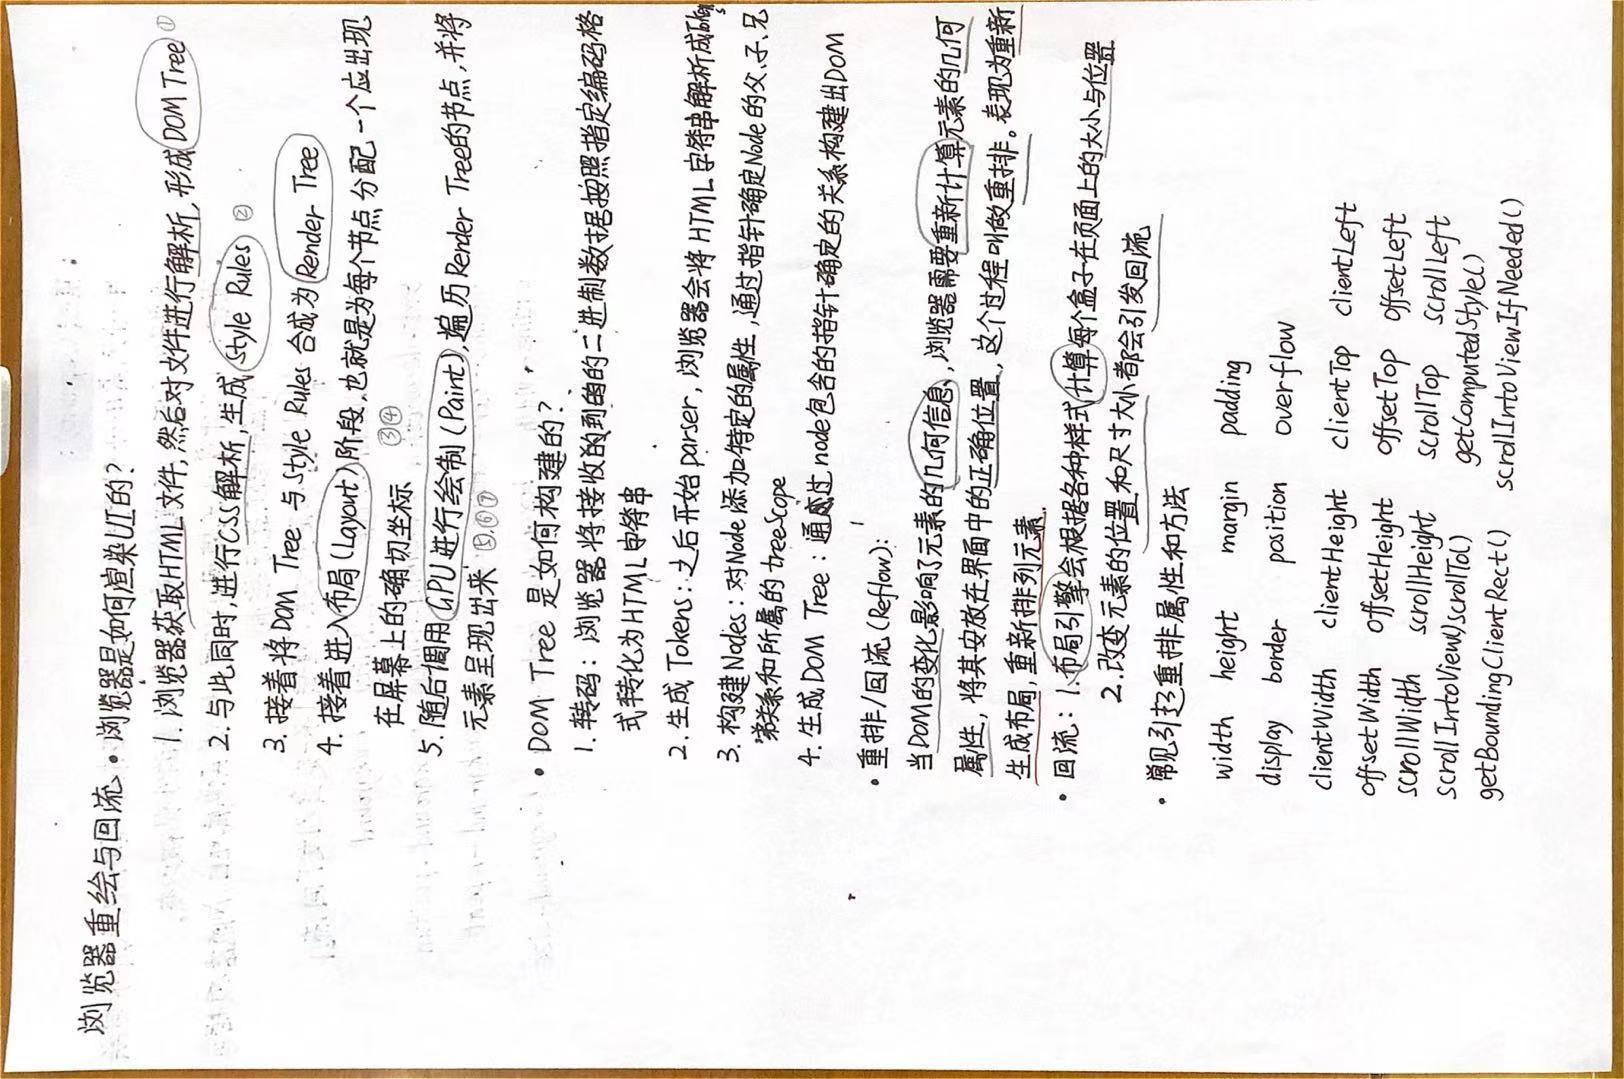 浏览器重绘与回流 • 浏览器是如何渲染UI的?
1. 浏览器获取HTML文件,然后对文件进行解析,形成DOM Tree ①
2. 与此同时,进行CSS解析,生成Style Rules ②
3. 接着将DOM Tree 与Style Rules 合成为Render Tree
4. 接着进入布局(Layout)阶段,也就是为每个节点分配一个应出现
在屏幕上的确切坐标 ③④
5. 随后调用GPU进行绘制(Paint),遍历Render Tree的节点,并将
元素呈现出来 ⑤.⑥⑦
• DOM Tree 是如何构建的?
1. 转码: 浏览器将接收到的的二进制数据按照指定编码格
式转化为HTML字符串
2. 生成Tokens: 之后开始parser, 浏览器会将HTML字符串解析成Tokens
3. 构建Nodes: 对Node添加特定的属性,通过指针确定Node的父、子、兄
弟关系和所属的treeScope
4. 生成DOM Tree: 通过node包含的指针确定的关系构建出DOM
• 重排/回流(Reflow):
当DOM的变化影响了元素的几何信息,浏览器需要重新计算元素的几何
属性, 将其安放在界面中的正确位置, 这个过程叫做重排。表现为重新
生成布局,重新排列元素.
• 回流: 1.布局引擎会根据各种样式计算每个盒子在页面上的大小与位置
2.改变元素的位置和尺寸大小都会引发回流
• 常见引起重排属性和方法
width height margin padding
display border position overflow
clientWidth clientHeight clientTop clientLeft
offsetWidth offsetHeight offsetTop offsetLeft
scrollWidth scrollHeight scrollTop scrollLeft
scrollIntoView() scrollTo() getComputedStyle()
getBoundingClientRect() scrollIntoViewIfNeeded()